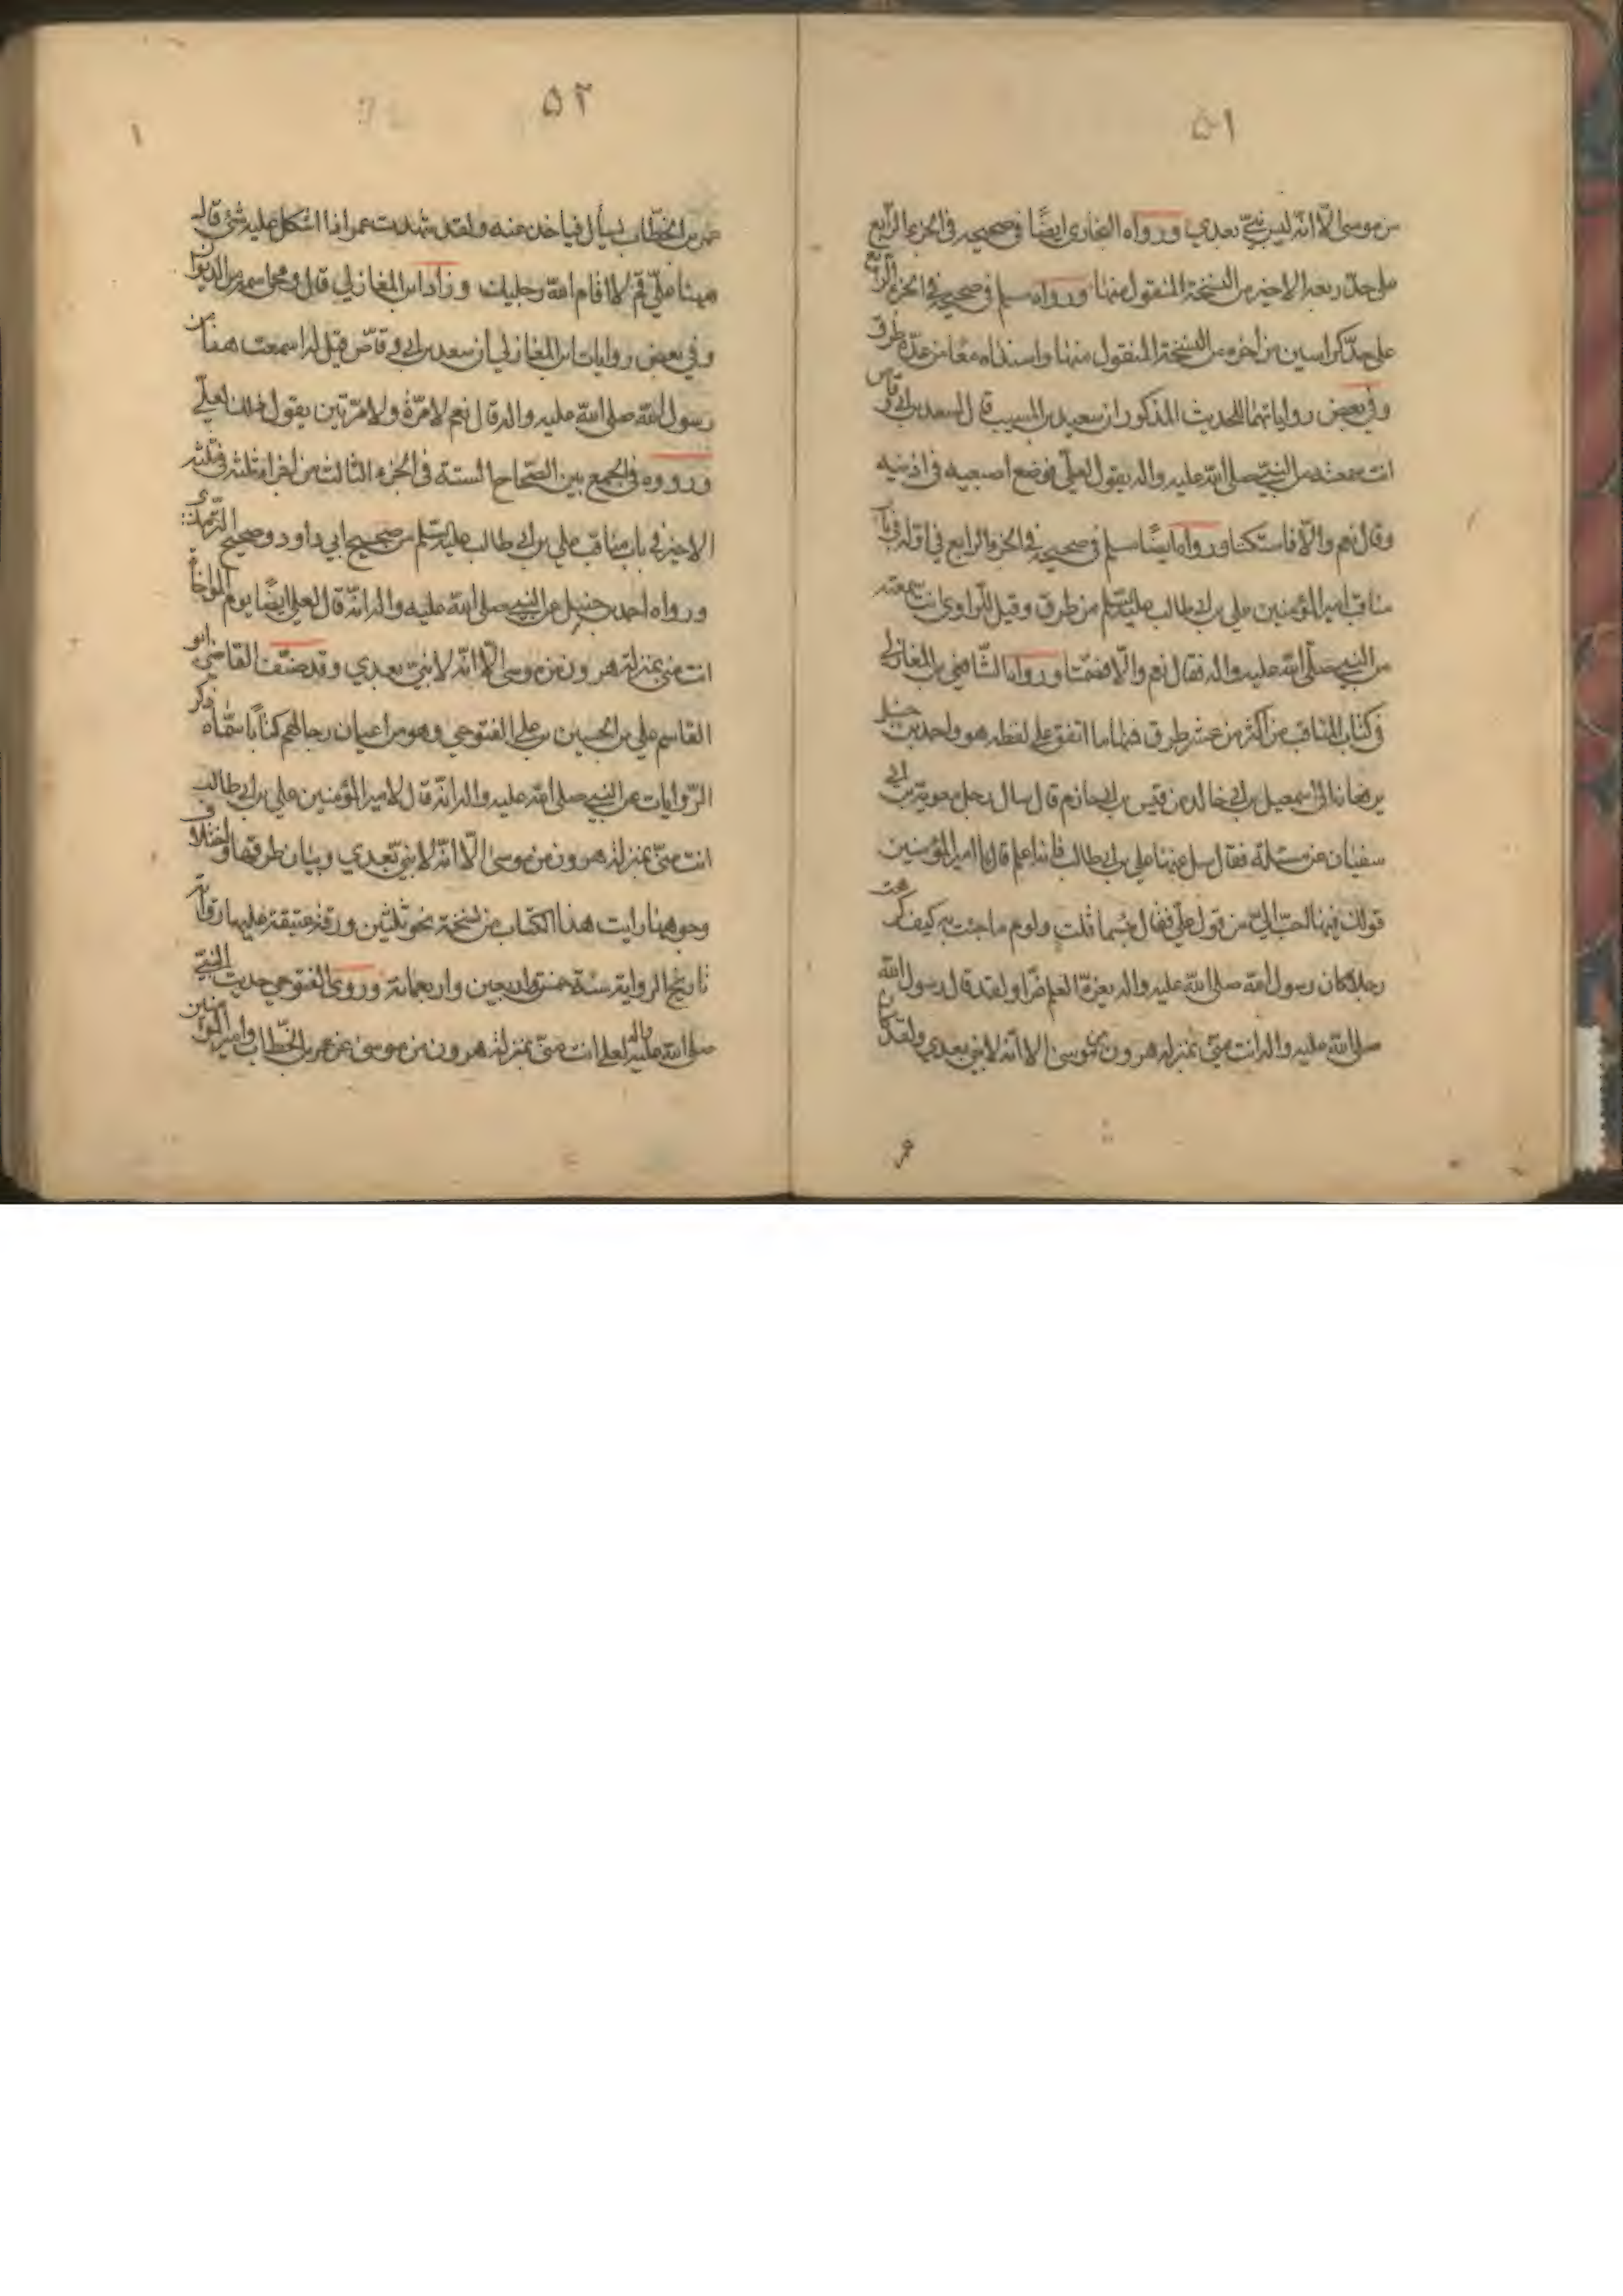 ٥١
من موسى الّا انّه ليس نبيّ بعدي ورواه البخاري ايضًا في صحيحه في الجزء الرّابع
على حدّ ربعه الاخير من النسخة المنقول منها ورواه مسلم في صحيحه في الجزء الرّابع
على حدّ كراسين من آخره من النسخة المنقول منها واسنداه معًا من عدّة طرق
وفي بعض رواياتهما للحديث المذكور ان سعيد بن المسيب قال لسعد بن ابي وقاص
انت سمعته من النبيّ صلى الله عليه واله يقول لعليّ فوضع اصبعيه في اذنيه
وقال نعم والّا فاستكتا ورواه ايضًا مسلم في صحيحه في الجزء الرابع في اوّله في باب
مناقب امير المؤمنين علي بن ابي طالب عليه السّلم من طرق وقيل للراوي انت سمعته
من النبي صلّى الله عليه واله فقال نعم والّا فصمّتا ورواه الشّافعي بن المغازلي
في كتاب المناقب من اكثر من عشر طرق فمنها ما اتفق على لفظه هو واحمد بن حنبل
يرفعانه الى اسمعيل بن ابي خالد عن قيس بن ابي حازم قال سال رجل معوية بن ابي
سفيان عن مسئلة فقال سل عنها علي بن ابي طالب فانه اعلم قال يا امير المؤمنين
قولك فيها احبّ اليّ من قول عليّ فقال بئسما قلت ولوم ما جئت به كيف كرهت
رجلا كان رسول الله صلى الله عليه واله يغزّه العلم غزّا ولقد قال رسول الله
صلى الله عليه واله انت منّي بمنزلة هرون من موسى الا انّه لا نبي بعدي ولقد كان
عمر
٥٢
عمر بن الخطّاب يسأل فياخذ عنه ولقد شهدت عمر اذا اشكل عليه شئ قال
ههنا عليّ قم لا اقام الله رجليك وزاد ابن المغازلي قال ومحى اسمه من الديوان
وفي بعض روايات ابن المغازلي ان سعد بن ابي وقاص قيل له اسمعت هذا من
رسول الله صلى الله عليه واله قال نعم لا مرّة ولا مرّتين يقول ذلك لعليّ
ورووه في الجمع بين الصّحاح الستة في الجزء الثالث من اجزاء ثلثه في ثلثه
الاخير في باب مناقب علي بن ابي طالب عليه السّلم من صحيح ابي داود وصحيح الترمذي
ورواه احمد بن حنبل عن النبي صلى الله عليه واله انه قال لعلي ايضًا يوم المواخاة
انت منّي بمنزلة هرون من موسى الّا انّه لا نبيّ بعدي وقد صنّف القاضي ابو
القاسم علي بن الحسين بن علي الفتوحي وهو من اعيان رجالهم كتابًا سمّاه ذكر
الرّوايات عن النبي صلى الله عليه واله انّه قال لامير المؤمنين علي بن ابي طالب
انت منّي بمنزلة هرون من موسى الّا انّه لا نبيّ بعدي وبيان طرقها واختلاف
وجوهها رايت هذا الكتاب من نسخة نحو ثلثين ورقة عتيقة عليها رواية
تاريخ الرواية سنة خمس واربعين واربعمائة وروى الفتوحي حديث النبيّ
صلى الله عليه واله لعلي انت منّي بمنزلة هرون من موسى عن عمر بن الخطّاب وامير المؤمنين